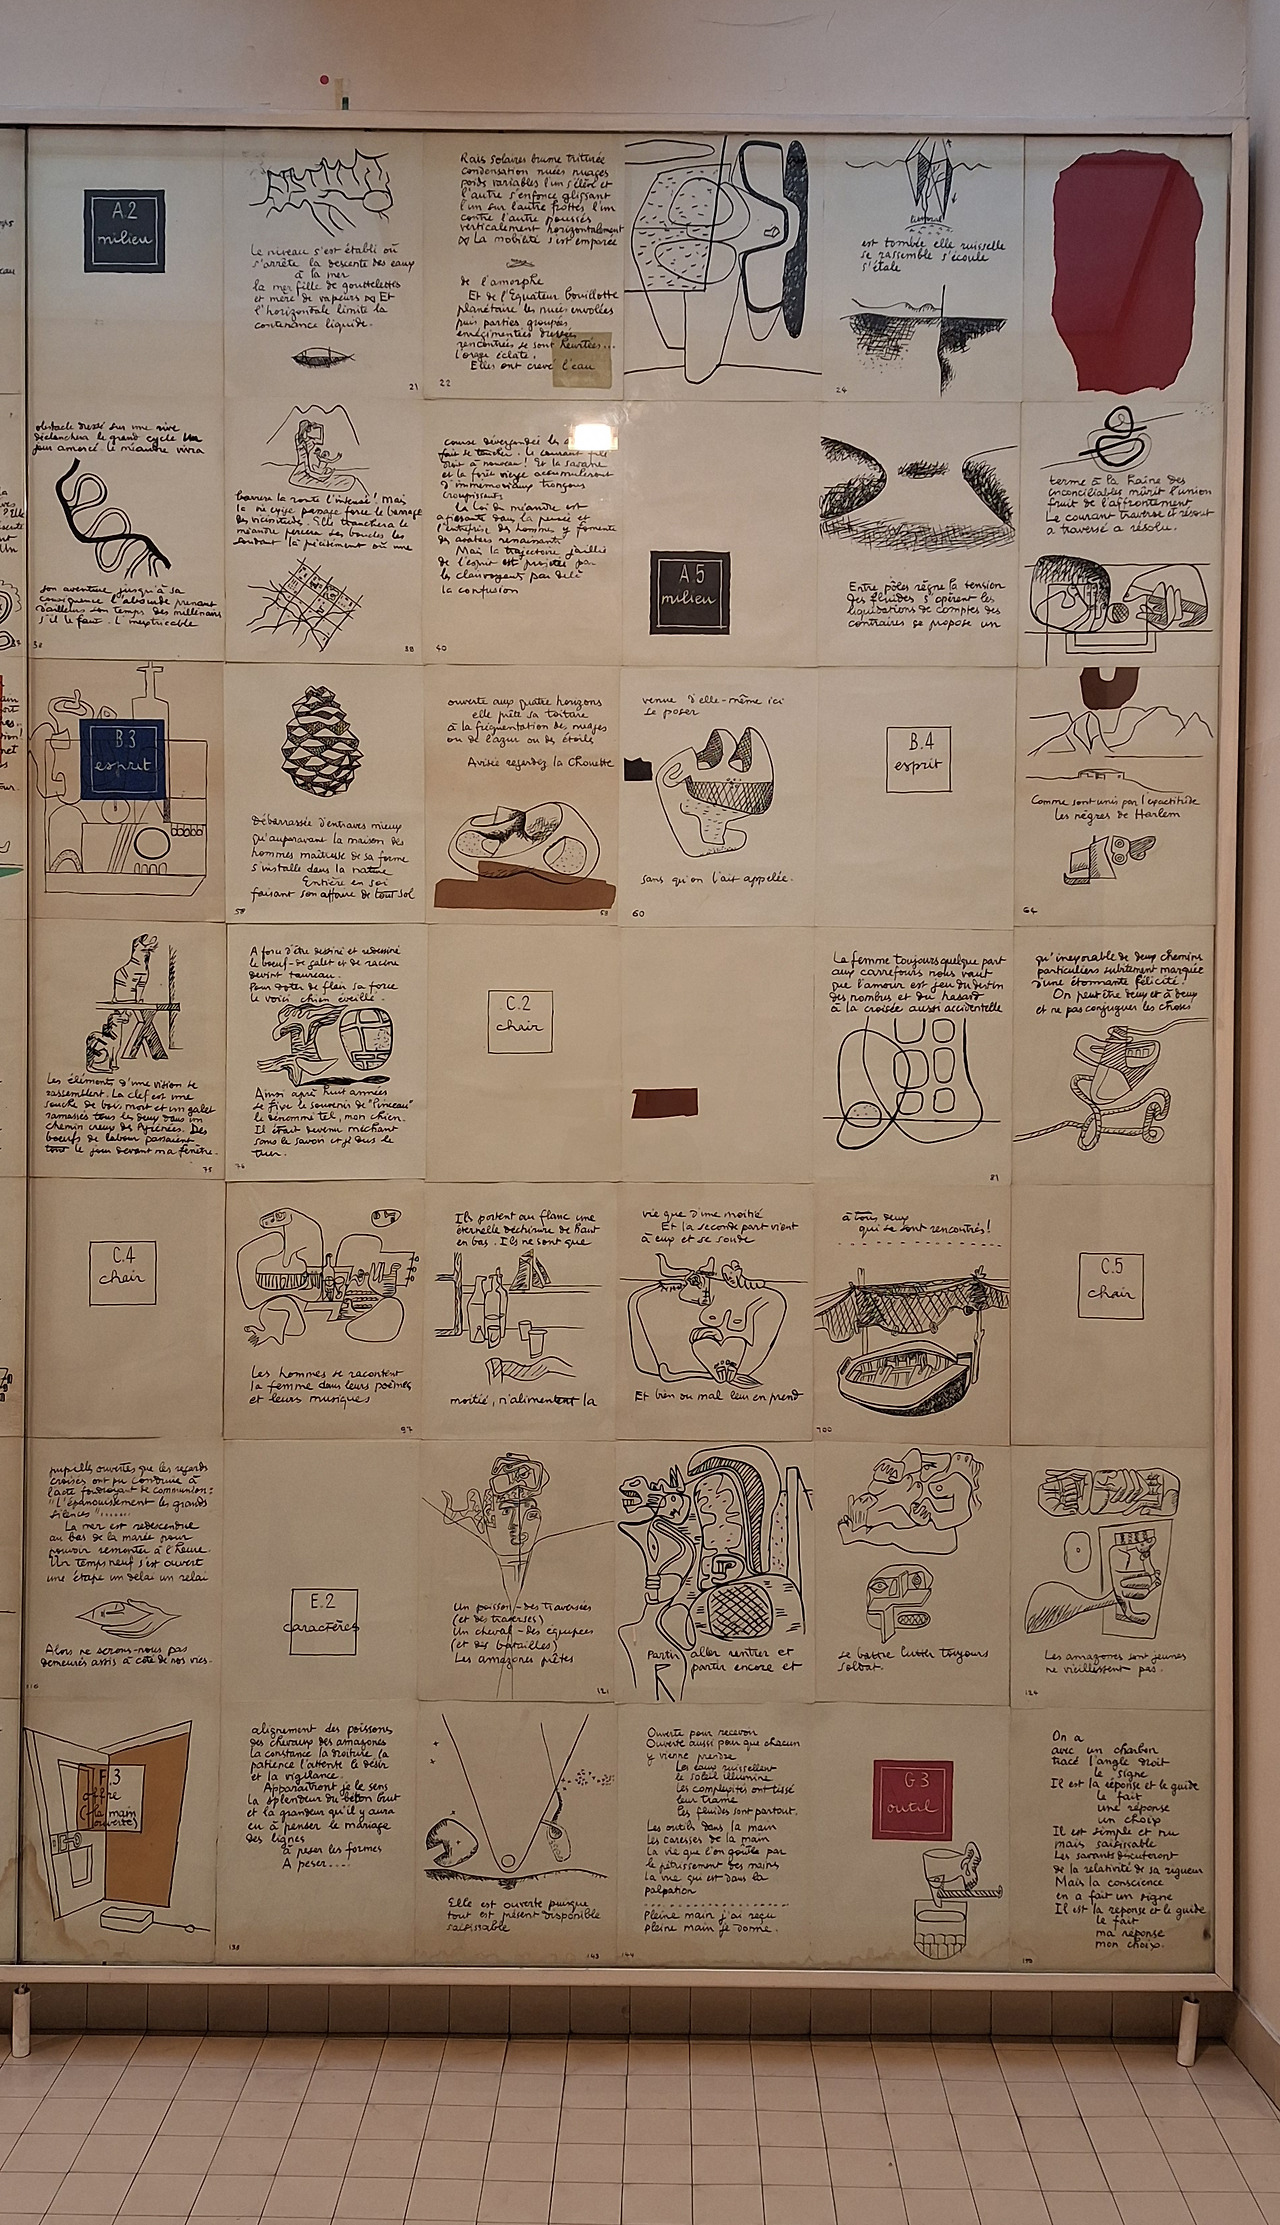 A.2
milieu
Le niveau s'est établi où
s'arrête la descente des eaux
à la mer
la mer fille de gouttelettes
et mère de vapeurs Et
l'horizontale limite la
contenance liquide.
21
Rais solaires brume triturée
condensation nuées nuages
poids variables l'un s'élève et
l'autre s'enfonce glissant
l'un sur l'autre frottés l'un
contre l'autre poussés
verticalement horizontalement
La mobilité s'est emparée
de l'amorphe
Et de l'Équateur bouillotte
planétaire les nuées envolées
puis parties groupées
enrégimentées dirigées
rencontrées se sont heurtées...
l'orage éclate.
Elles ont crevé l'eau
22
est tombée elle ruisselle
se rassemble s'écoule
s'étale
24
obstacle dressé sur une rive
déclenchera le grand cycle Un
jour amorcé le méandre vivra
son aventure jusqu'à sa
conséquence l'absurde prenant
d'ailleurs son temps des millénaires
s'il le faut. L'inextricable
38
barrera la route l'insensé! Mais
la vie exige passage force le barrage
des vicissitudes. Elle tranchera le
méandre percera ses boucles les
soudant là précisément où une
course dévergondée les a
fait se toucher. Le courant file
droit à nouveau! Et la savane
et la forêt vierge accumuleront
d'immémoriaux tronçons
croupissants
La loi du méandre est
agissante dans la pensée et
l'entreprise des hommes y fomente
des avatars renaissants
Mais la trajectoire jaillie
de l'esprit est projetée par
les clairvoyants par delà
la confusion
40
A.5
milieu
Entre pôles règne la tension
des fluides s'opèrent les
liquidations de comptes des
contraires se propose un
terme à la haine des
inconciliables mûrit l'union
fruit de l'affrontement
Le courant traverse et résout
a traversé a résolu.
B.3
esprit
Débarrassée d'entraves mieux
qu'auparavant la maison des
hommes maîtresse de sa forme
s'installe dans la nature
Entière en soi
faisant son affaire de tout sol
58
ouverte aux quatre horizons
elle prête sa toiture
à la fréquentation des nuages
ou de l'azur ou des étoiles
Avisée regardez la Chouette
59
venue d'elle-même ici
se poser
sans qu'on l'ait appelée.
60
B.4
esprit
Comme sont unis par l'exactitude
les nègres de Harlem
64
Les éléments d'une vision se
rassemblent. La clef est une
souche de bois mort et un galet
ramassés tous les deux dans un
chemin creux des Pyrénées. Des
boeufs de labour passaient
tout le jour devant ma fenêtre.
75
A force d'être dessiné et redessiné
le boeuf-de galet et de racine
devint taureau.
Pour doter de flair sa force
le voici chien éveillé.
Ainsi après huit années
se fixe le souvenir de "Pinceau"
le dénommé tel, mon chien.
Il était devenu méchant
sans le savoir et je dus le
tuer.
76
C.2
chair
La femme toujours quelque part
aux carrefours nous vaut
que l'amour est jeu du destin
des nombres et du hasard
à la croisée aussi accidentelle
81
qu'inexorable de deux chemins
particuliers subitement marquée
d'une étonnante félicité!
On peut être deux et à deux
et ne pas conjuguer les choses
C.4
chair
Les hommes se racontent
la femme dans leurs poèmes
et leurs musiques
97
Ils portent au flanc une
éternelle déchirure de haut
en bas. Ils ne sont que
moitié, n'alimentent la
vie que d'une moitié
Et la seconde part vient
à eux et se soude
Et bien ou mal leur en prend
à tous deux
qui se sont rencontrés!
100
C.5
chair
pupilles ouvertes que les regards
croisés ont pu conduire à
l'acte foudroyant de communion:
"L'épanouissement les grands
silences"
La mer est redescendue
au bas de la marée pour
pouvoir remonter à l'heure.
Un temps neuf s'est ouvert
une étape un délai un relai
Alors ne serons-nous pas
demeurés assis à côté de nos vies.
E.2
caractères
Un poisson-des traversées
(et des traverses)
Un cheval-des équipées
(et des batailles)
Les amazones prêtes
121
Partir aller rentrer et
partir encore et
se battre lutter toujours
soldat.
Les amazones sont jeunes
ne vieillissent pas.
124
F.3
offre
(la main
ouverte)
alignement des poissons
des chevaux des amazones
la constance la droiture la
patience l'attente le désir
et la vigilance.
Apparaîtront je le sens
la splendeur du béton brut
et la grandeur qu'il y aura
eu à penser le mariage
des lignes
à peser les formes
A peser....
Elle est ouverte puisque
tout est présent disponible
saisissable
143
Ouverte pour recevoir
Ouverte aussi pour que chacun
y vienne prendre
Les eaux ruissellent
le soleil illumine
Les complexités ont tissé
leur trame
les fluides sont partout.
Les outils dans la main
Les caresses de la main
La vie que l'on goûte par
le pétrissement des mains
La vue qui est dans la
palpation
Pleine main j'ai reçu
pleine main je donne.
144
G 3
outil
On a
avec un charbon
tracé l'angle droit
le signe
Il est la réponse et le guide
le fait
une réponse
un choix
Il est simple et nu
mais saisissable
Les savants discuteront
de la relativité de sa rigueur
Mais la conscience
en a fait un signe
Il est la réponse et le guide
le fait
ma réponse
mon choix.